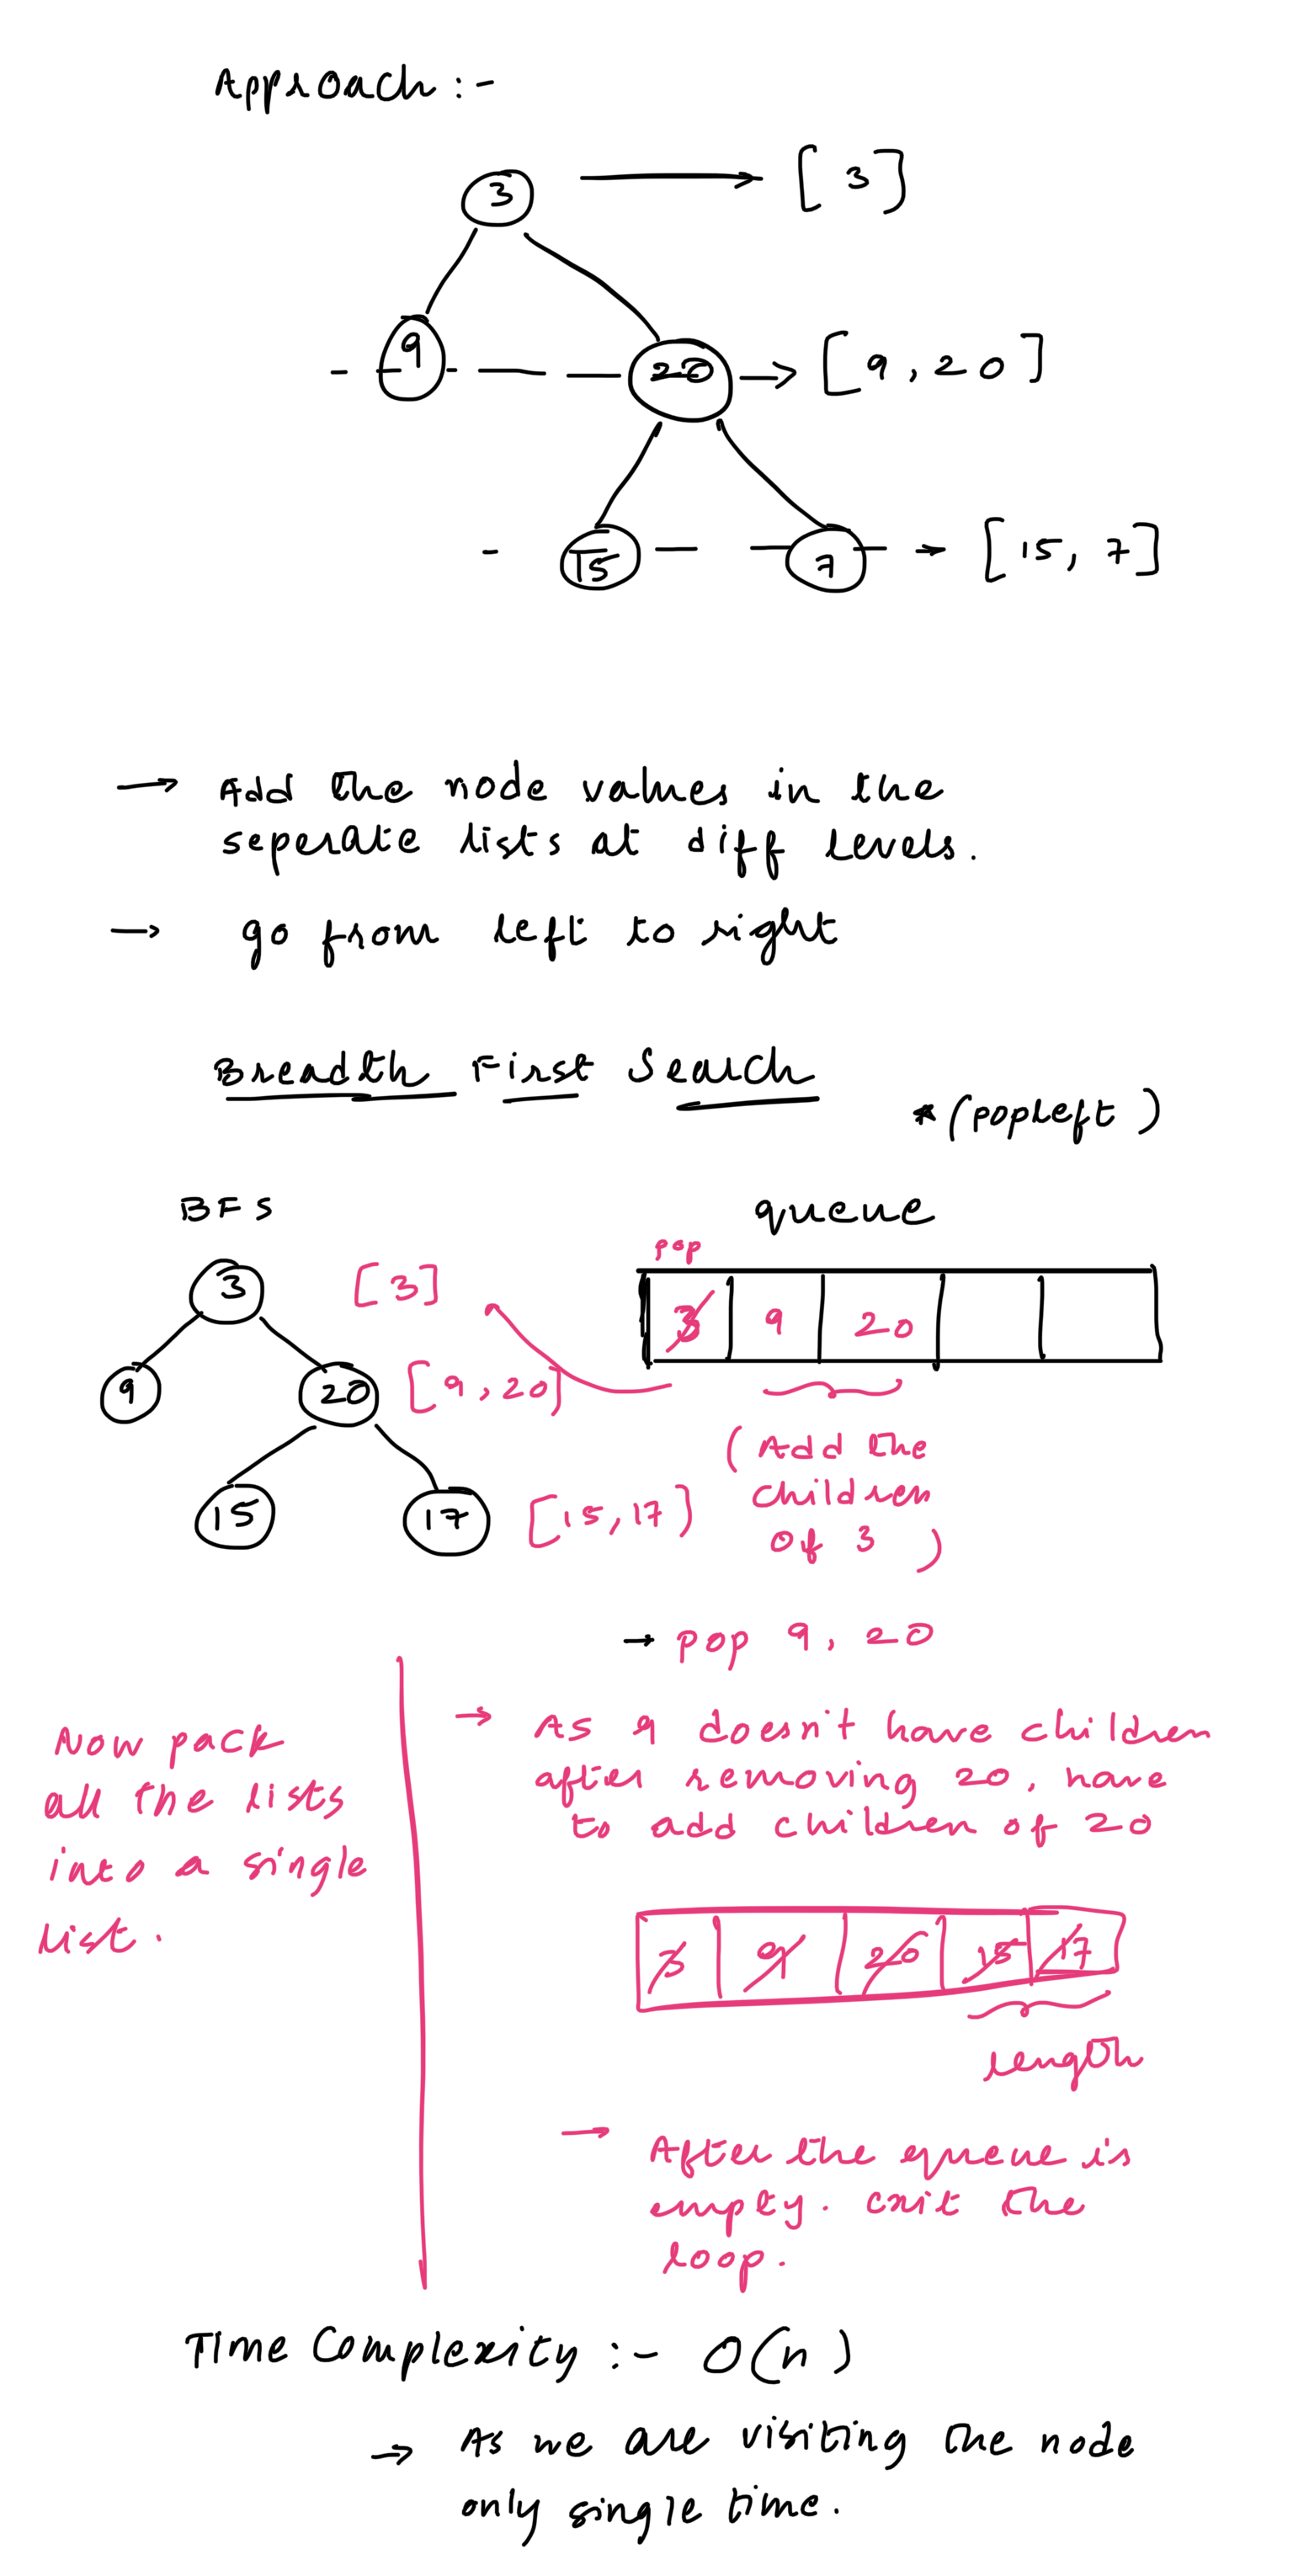 Approach :-
3 [ 3 ]
9 20 [ 9 , 20 ]
15 7 [ 15 , 7 ]
Add the node values in the
seperate lists at diff levels.
go from left to right
Breadth First Search
* (popleft )
BFS
queue
pop
3 [ 3 ]
3 9 20
9 20 [ 9 , 20 ]
( Add the
children
of 3 )
15 17 [ 15 , 17 ]
pop 9 , 20
As 9 doesn't have children
after removing 20 , have
to add children of 20
Now pack
all the lists
into a single
list .
3 9 20 15 17
length
After the queue is
empty . exit the
loop .
Time Complexity :- O(n)
As we are visiting the node
only single time .